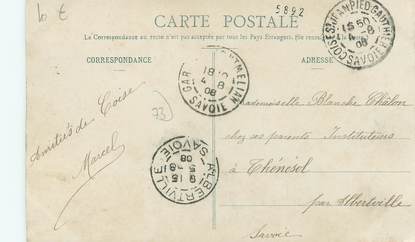 10 €
5892
CARTE POSTALE
La Correspondance au recto n'est pas acceptée par tous les Pays Étrangers.
CORRESPONDANCE
ADRESSE
COISE-ST-JEAN-PIED-GAUTHIER
15 50
4 -8
08
SAVOIE
GARE MONTMELIAN
18
4 -8
08
SAVOIE
73
Amitiés de Coise
Marcel
Mademoiselle Blanche Châlon
chez ses parents Instituteurs
à Thénésol
par Albertville
Savoie
ALBERTVILLE
9 15
5 -8
08
SAVOIE